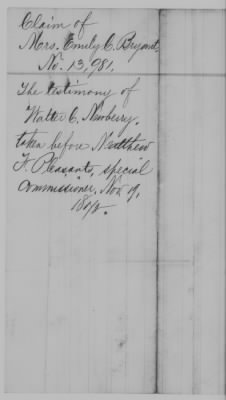 Claim of
Mrs. Emily C. Bryant,
No. 13,981.
The testimony of
Walter C. Newberry,
taken before Matthew
F. Pleasants, special
commissioner, Nov 19,